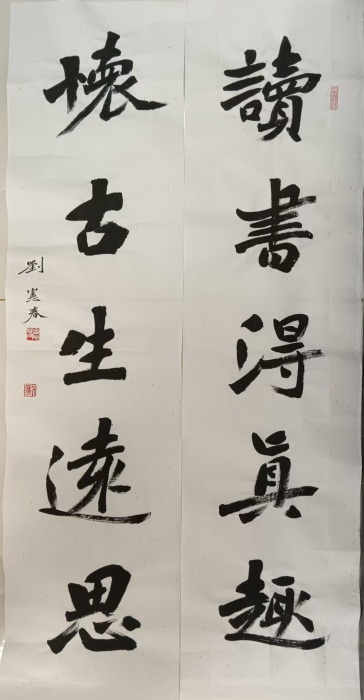 讀書得真趣
懷古生遠思
劉憲春